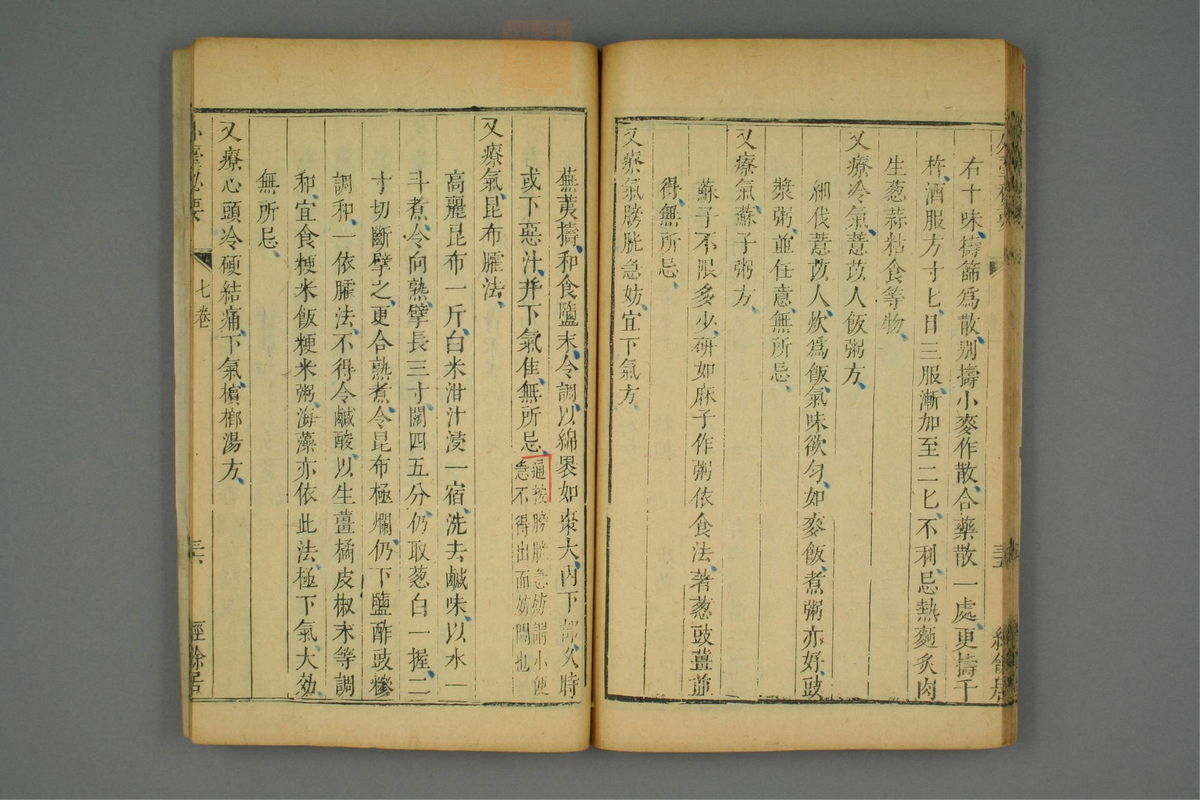 右十味擣篩爲散别擣小麥作散合藥散一處更擣千
杵酒服方寸匕日三服漸加至二匕不利忌熱麵炙肉
生葱蒜粘食等物
又療冷氣薏苡人飯粥方
細伐薏苡人炊爲飯氣味欲勻如麥飯煮粥亦好豉
漿粥並任意無所忌
又療氣蘇子粥方
蘇子不限多少研如麻子作粥依食法著葱豉薑並
得無所忌
又療氣膀胱急妨宜下氣方
蕪荑擣和食鹽末令調以綿褁如棗大内下部久時
或下惡汁并下氣佳無所忌
逼按膀胱急妨謂小便
急不得出而妨悶也
又療氣昆布臛法
高麗昆布一斤白米泔汁浸一宿洗去鹹味以水一
斗煮令向熟擘長三寸闊四五分仍取葱白一握二
寸切斷擘之更合熟煮令昆布極爛仍下鹽酢豉糝
調和一依臛法不得令鹹酸以生薑橘皮椒末等調
和宜食粳米飯粳米粥海藻亦依此法極下氣大効
無所忌
又療心頭冷硬結痛下氣檳榔湯方
外臺秘要 七卷 三六 經餘居